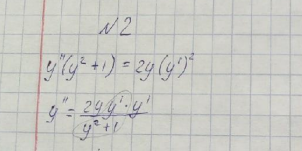 №2
y''(y²+1) = 2y(y')²
y'' = 2yy'·y' / y²+1